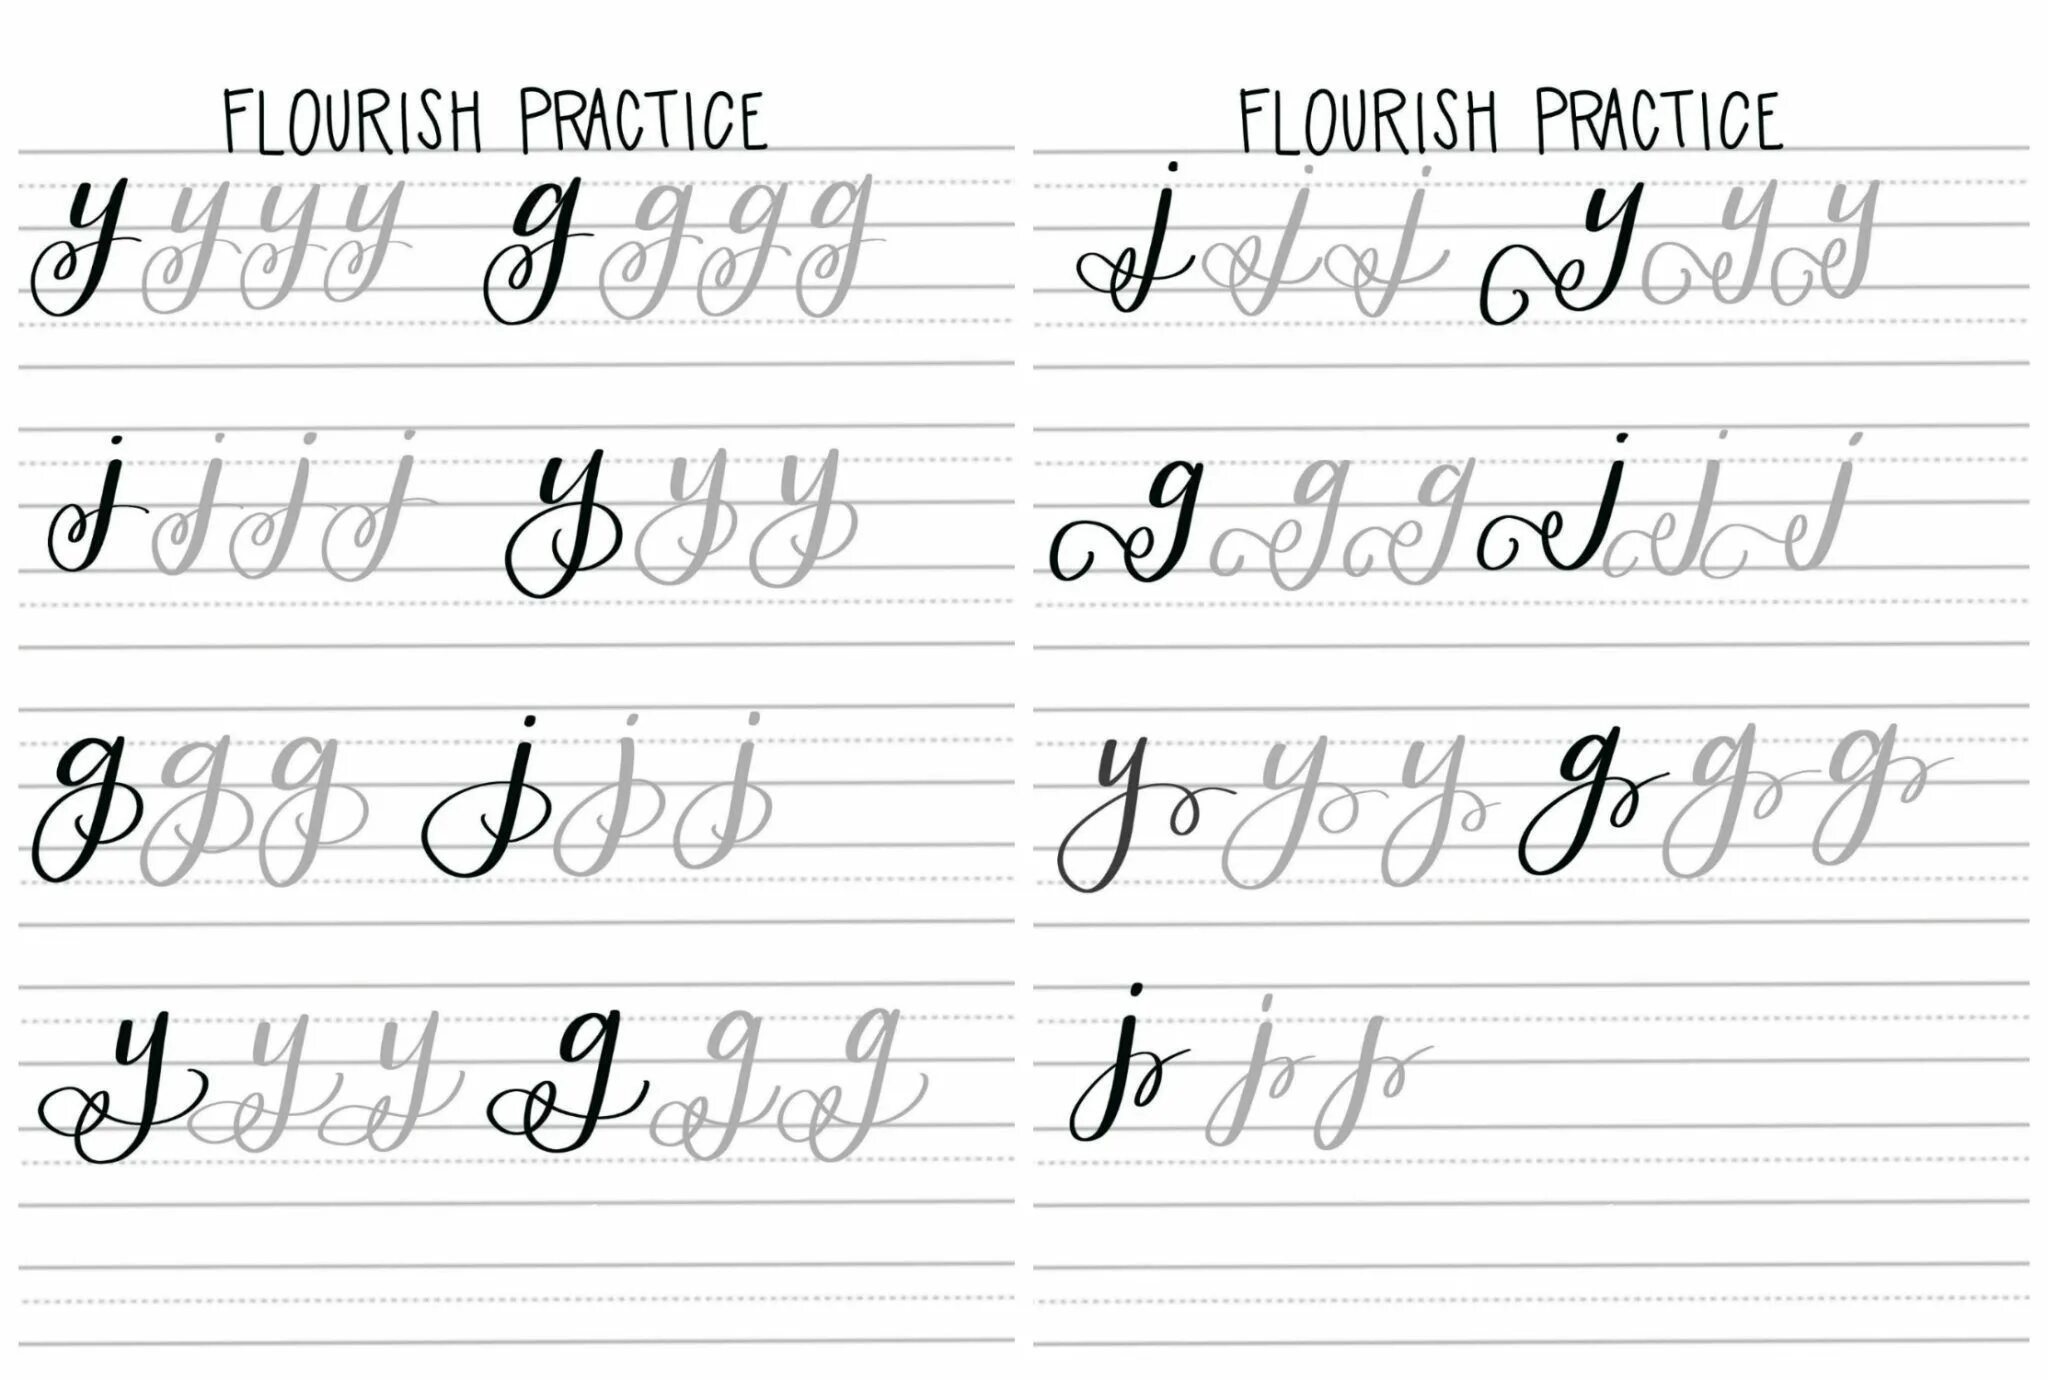 FLOURISH PRACTICE
y y y y g g g g
j j j j y y y
g g g j j j
y y y g g g
FLOURISH PRACTICE
j j j y y y
g g g j j j
y y y g g g
j j j